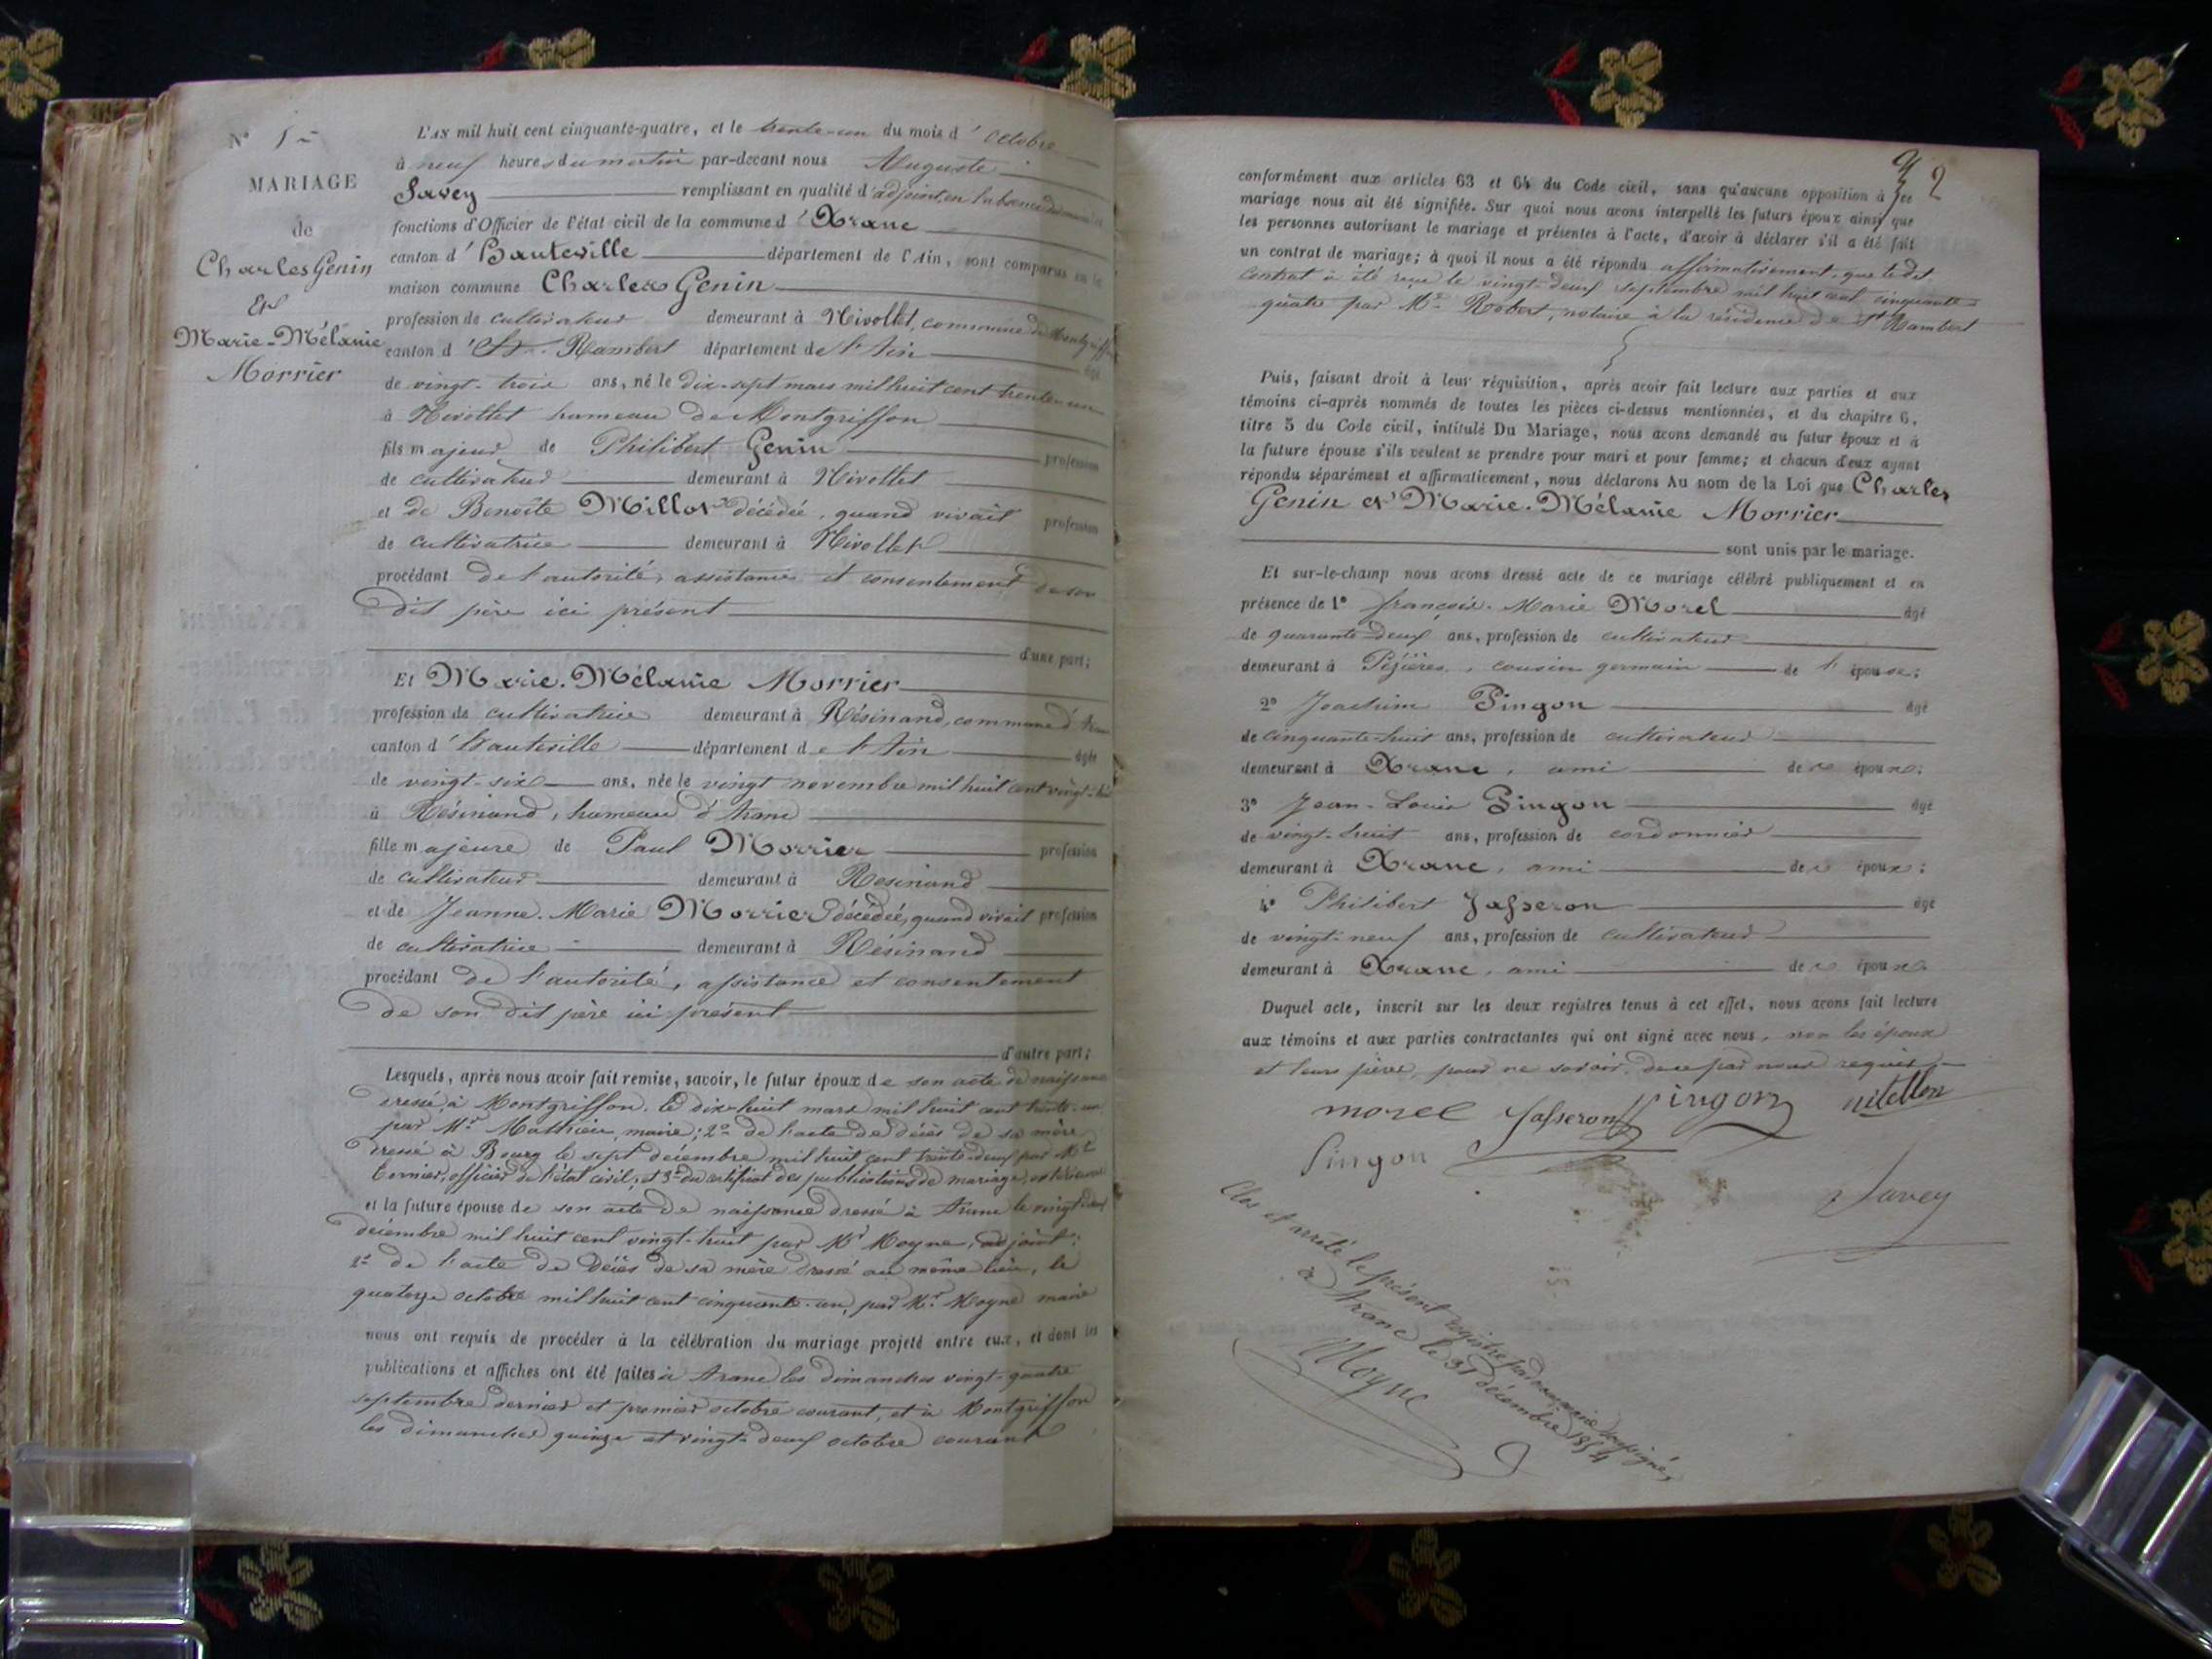 N° 15
MARIAGE
de
Charles Genin
Et
Marie-Mélanie
Morrier
L'AN mil huit cent cinquante-quatre, et le trente-un du mois d'octobre
à neuf heures du matin par-devant nous Auguste
Savey remplissant en qualité d'adjoint, en l'absence du maire les
fonctions d'Officier de l'état civil de la commune d'Aranc
canton d'Hauteville département de l'Ain, sont comparus en la
maison commune Charles Genin
profession de cultivateur demeurant à Nivollet, commune de Montgriffon
canton d St. Rambert département de l'Ain âgé
de vingt-trois ans, né le dix-sept mars mil huit cent trente-un
à Nivollet hameau de Montgriffon
fils majeur de Philibert Genin profession
de cultivateur demeurant à Nivollet
et de Benoîte Millot décédée, quand vivait profession
de cultivatrice demeurant à Nivollet
procédant de l'autorité, assistance et consentement de son
dit père ici présent
d'une part;
Et Marie-Mélanie Morrier
profession de cultivatrice demeurant à Résinand, commune d'Aranc
canton d'Hauteville département de l'Ain âgée
de vingt-six ans, née le vingt novembre mil huit cent vingt-huit
à Résinand, hameau d'Aranc
fille majeure de Paul Morrier profession
de cultivateur demeurant à Resinand
et de Jeanne-Marie Morrier décédée, quand vivait profession
de cultivatrice demeurant à Résinand
procédant de l'autorité, assistance et consentement
de son dit père ici présent
d'autre part;
Lesquels, après nous avoir fait remise, savoir, le futur époux de son acte de naissance
dressé à Montgriffon, le dix-huit mars mil huit cent trente-un
par Mr. Mathieu, maire; 2° de l'acte de décès de sa mère
dressé à Bourg le sept décembre mil huit cent trente-deux par Mr
officier de l'état civil; et 3° du certificat des publications de mariage,
et la future épouse de son acte de naissance dressé à Aranc le vingt-deux
décembre mil huit cent vingt-huit par Mr Moyne, adjoint;
2° de l'acte de décès de sa mère dressé au même lieu, le
quatorze octobre mil huit cent cinquante-un, par Mr. Moyne maire
nous ont requis de procéder à la célébration du mariage projeté entre eux, et dont les
publications et affiches ont été faites à Aranc les dimanches vingt-quatre
septembre dernier et premier octobre courant, et à Montgriffon
les dimanches quinze et vingt-deux octobre courant
92
conformément aux articles 63 et 64 du Code civil, sans qu'aucune opposition à ce
mariage nous ait été signifiée. Sur quoi nous avons interpellé les futurs époux ainsi que
les personnes autorisant le mariage et présentes à l'acte, d'avoir à déclarer s'il a été fait
un contrat de mariage; à quoi il nous a été répondu affirmativement, que ledit
contrat a été reçu le vingt-deux septembre mil huit cent cinquante-
quatre par Me. Robert, notaire à la résidence de St Rambert
Puis, faisant droit à leur réquisition, après avoir fait lecture aux parties et aux
témoins ci-après nommés de toutes les pièces ci-dessus mentionnées, et du chapitre 6,
titre 5 du Code civil, intitulé Du Mariage, nous avons demandé au futur époux et à
la future épouse s'ils veulent se prendre pour mari et pour femme; et chacun d'eux ayant
répondu séparément et affirmativement, nous déclarons Au nom de la Loi que Charles
Genin et Marie-Mélanie Morrier
sont unis par le mariage.
Et sur-le-champ nous avons dressé acte de ce mariage célébré publiquement et en
présence de 1° françois-Marie Morel âgé
de quarante-deux ans, profession de cultivateur
demeurant à Pézières, cousin germain de l'épouse;
2° Joachim Pingon âgé
de cinquante-huit ans, profession de cultivateur
demeurant à Aranc, ami de l'époux;
3° Jean-Louis Pingon âgé
de vingt-huit ans, profession de cordonnier
demeurant à Aranc, ami de l'époux;
4° Philibert Jasseron âgé
de vingt-neuf ans, profession de cultivateur
demeurant à Aranc, ami de l'époux
Duquel acte, inscrit sur les deux registres tenus à cet effet, nous avons fait lecture
aux témoins et aux parties contractantes qui ont signé avec nous, non les époux
et leurs pères, pour ne savoir, de ce par nous requis
morel Jasseron pingon
Pingon Savey
Clos et arrêté le présent registre par nous maire soussigné,
à Aranc le 31 décembre 1854
Moyne